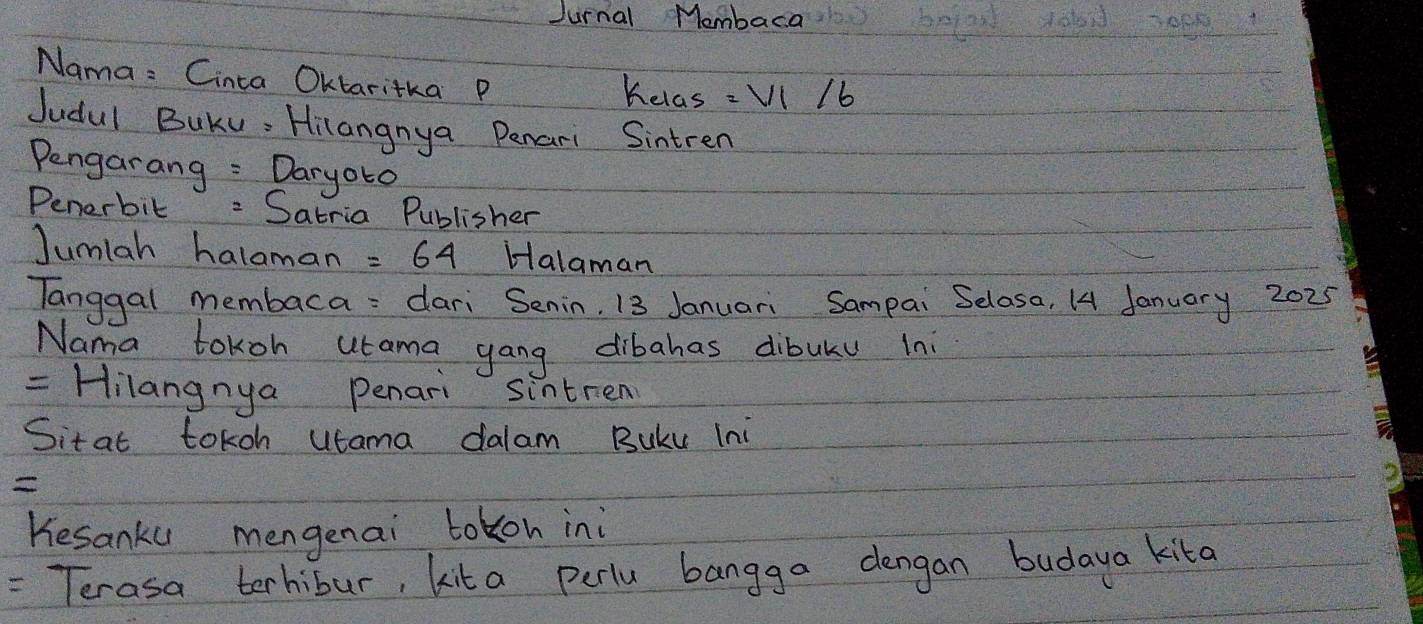 Jurnal Membaca
Nama = Cinta Oktaritka P Kelas = VI /6
Judul Buku = Hilangnya Penari Sintren
Pengarang = Daryoto
Penerbit = Satria Publisher
Jumlah halaman = 64 Halaman
Tanggal membaca = dari Senin, 13 Januari Sampai Selasa, 14 January 2025
Nama tokoh utama yang dibahas dibuku Ini
= Hilangnya penari sintren
Sitat tokoh utama dalam Buku Ini
=
Kesanku mengenai tokoh ini
= Terasa terhibur, kita perlu bangga dengan budaya kita